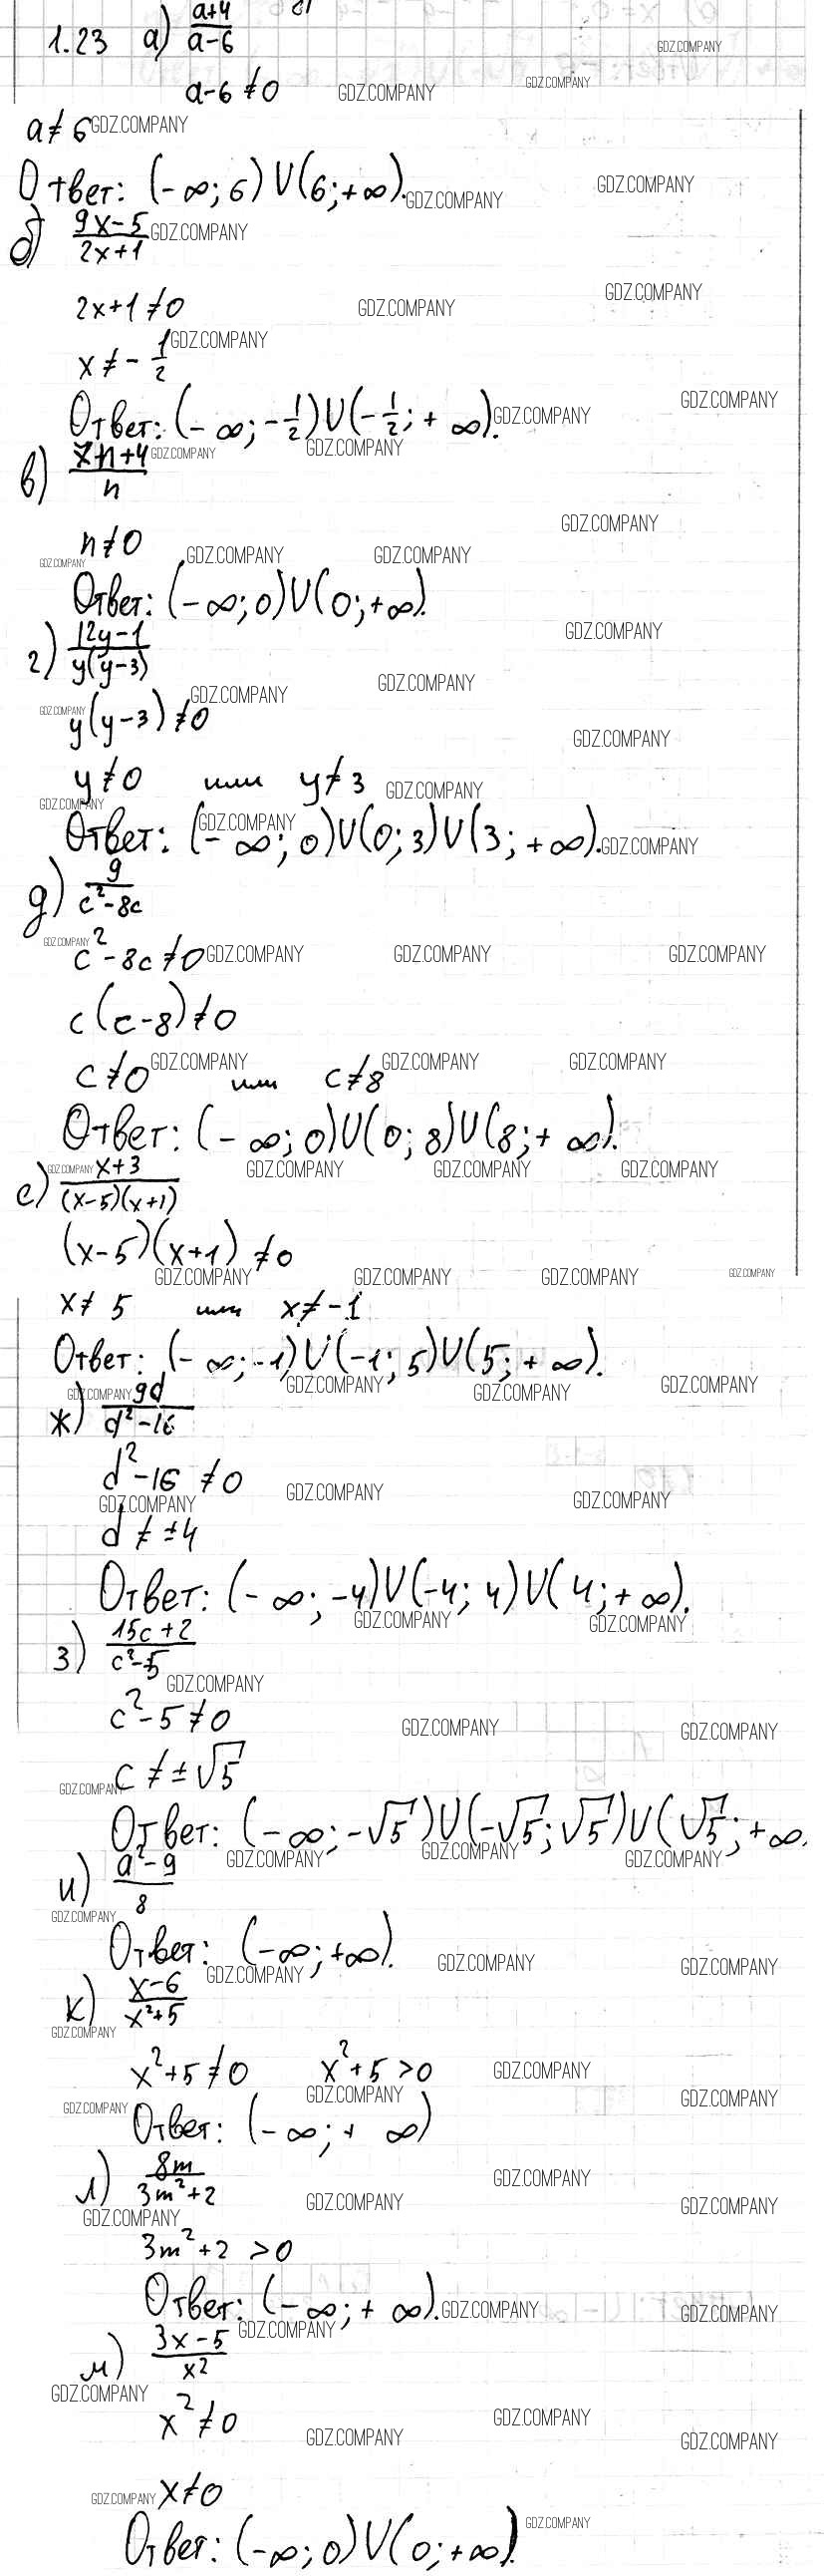 1.23 а) (a+4)/(a-6)
a-6 ≠ 0
a ≠ 6
Ответ: (-∞; 6) ∪ (6; +∞).
б) (9x-5)/(2x+1)
2x+1 ≠ 0
x ≠ -1/2
Ответ: (-∞; -1/2) ∪ (-1/2; +∞).
в) (7n+4)/n
n ≠ 0
Ответ: (-∞; 0) ∪ (0; +∞).
г) (12y-1)/(y(y-3))
y(y-3) ≠ 0
y ≠ 0 или y ≠ 3
Ответ: (-∞; 0) ∪ (0; 3) ∪ (3; +∞).
д) 9/(c²-8c)
c²-8c ≠ 0
c(c-8) ≠ 0
c ≠ 0 или c ≠ 8
Ответ: (-∞; 0) ∪ (0; 8) ∪ (8; +∞).
е) (x+3)/((x-5)(x+1))
(x-5)(x+1) ≠ 0
x ≠ 5 или x ≠ -1
Ответ: (-∞; -1) ∪ (-1; 5) ∪ (5; +∞).
ж) 9d/(d²-16)
d²-16 ≠ 0
d ≠ ±4
Ответ: (-∞; -4) ∪ (-4; 4) ∪ (4; +∞).
з) (15c+2)/(c²-5)
c²-5 ≠ 0
c ≠ ±√5
Ответ: (-∞; -√5) ∪ (-√5; √5) ∪ (√5; +∞
и) (a²-9)/8
Ответ: (-∞; +∞).
к) (x-6)/(x²+5)
x²+5 ≠ 0 x²+5 > 0
Ответ: (-∞; +∞)
л) 8m/(3m²+2)
3m²+2 > 0
Ответ: (-∞; +∞).
м) (3x-5)/x²
x² ≠ 0
x ≠ 0
Ответ: (-∞; 0) ∪ (0; +∞).
GDZ.COMPANY